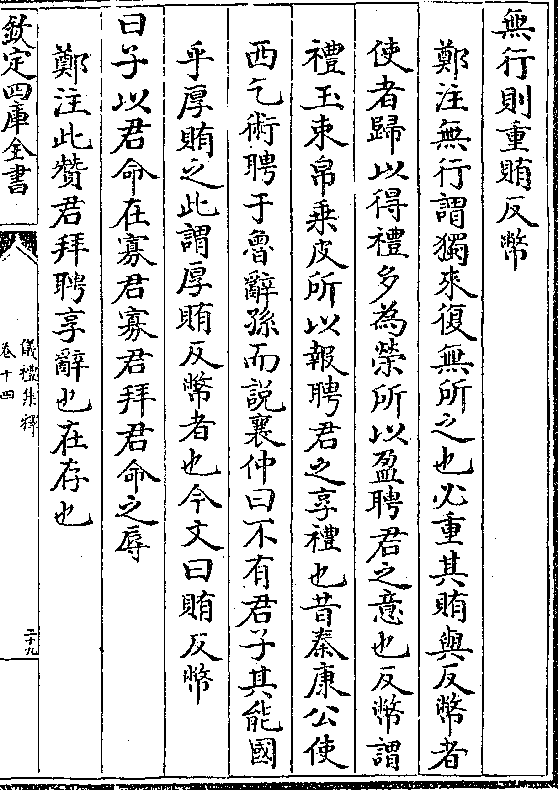 無行則重賄反幣
鄭注無行謂獨來復無所之也必重其賄與反幣者
使者歸以得禮多為榮所以盈聘君之意也反幣謂
禮玉束帛乗皮所以報聘君之享禮也昔秦康公使
西乞術聘于魯辭孫而説襄仲曰不有君子其能國
乎厚賄之此謂厚賄反幣者也今文曰賄反幣
曰子以君命在寡君寡君拜君命之辱
鄭注此贊君拜聘享辭也在存也
欽定四庫全書
儀禮集釋
卷十四
二十九